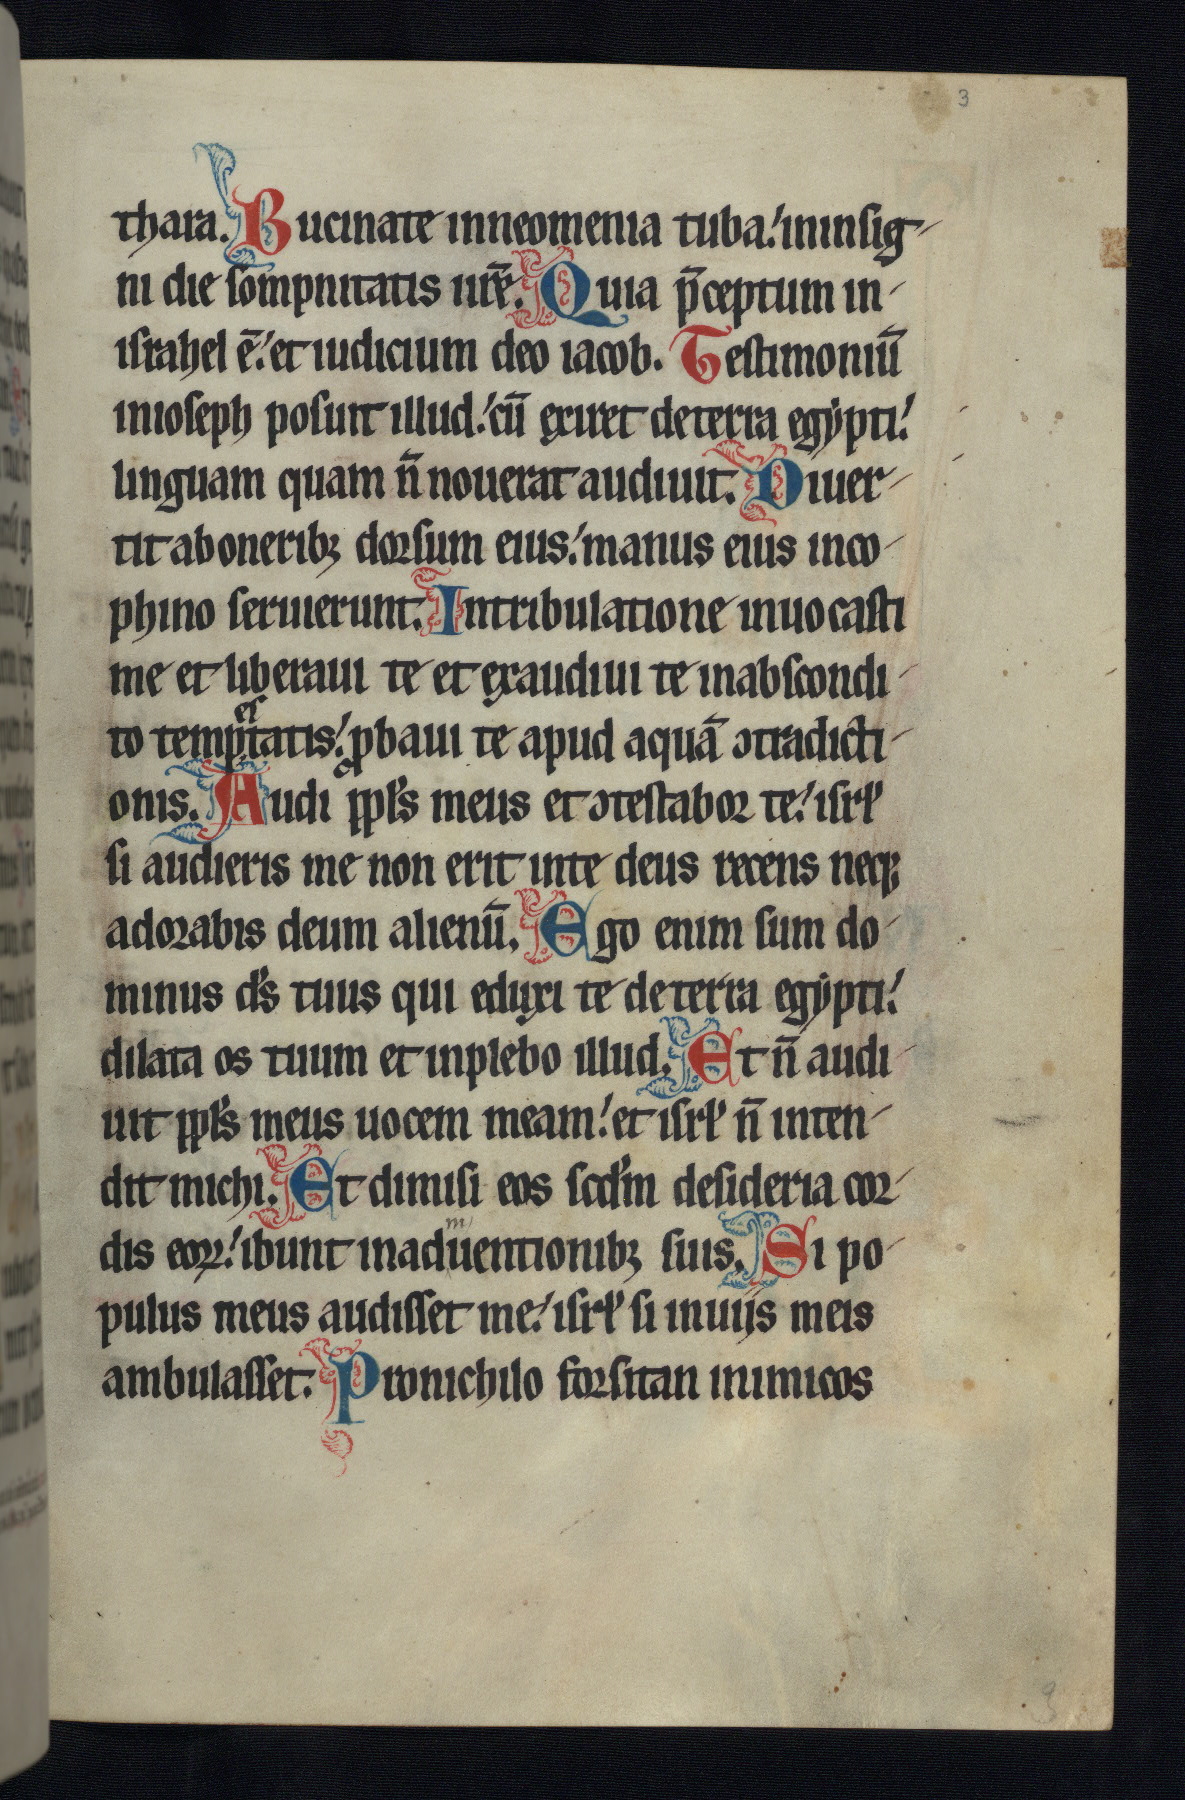 3
thara. Bucinate inneomenia tuba: ininsig-
ni die sompnitatis nr̃e. Quia p̃ceptum in-
israhel ē: et iudicium deo iacob. Testimoniū
inioseph posuit illud: cū exiret deterra egypti:
linguam quam n̄ nouerat audiuit. Diuer-
tit aboneribꝫ dorsum eius: manus eius inco-
phino seruierunt. Intribulatione inuocasti
me et liberaui te et exaudiui te inabscondi-
es
to temptatis: ꝓbaui te apud aquā ↄtradicti-
onis. Audi ppl's meus et ↄtestabor te: isrl'
si audieris me non erit inte deus recens neqꝫ
adorabis deum alienū. Ego enim sum do-
minus d's tuus qui eduxi te deterra egypti:
dilata os tuum et inplebo illud. Et n̄ audi-
uit ppl's meus uocem meam: et isrl' n̄ inten-
dit michi. Et dimisi eos scd'm desideria cor-
m
dis eoꝝ: ibunt inaduentionibꝫ suis. Si po-
pulus meus audisset me: isrl' si inuijs meis
ambulasset. Pronichilo forsitan inimicos